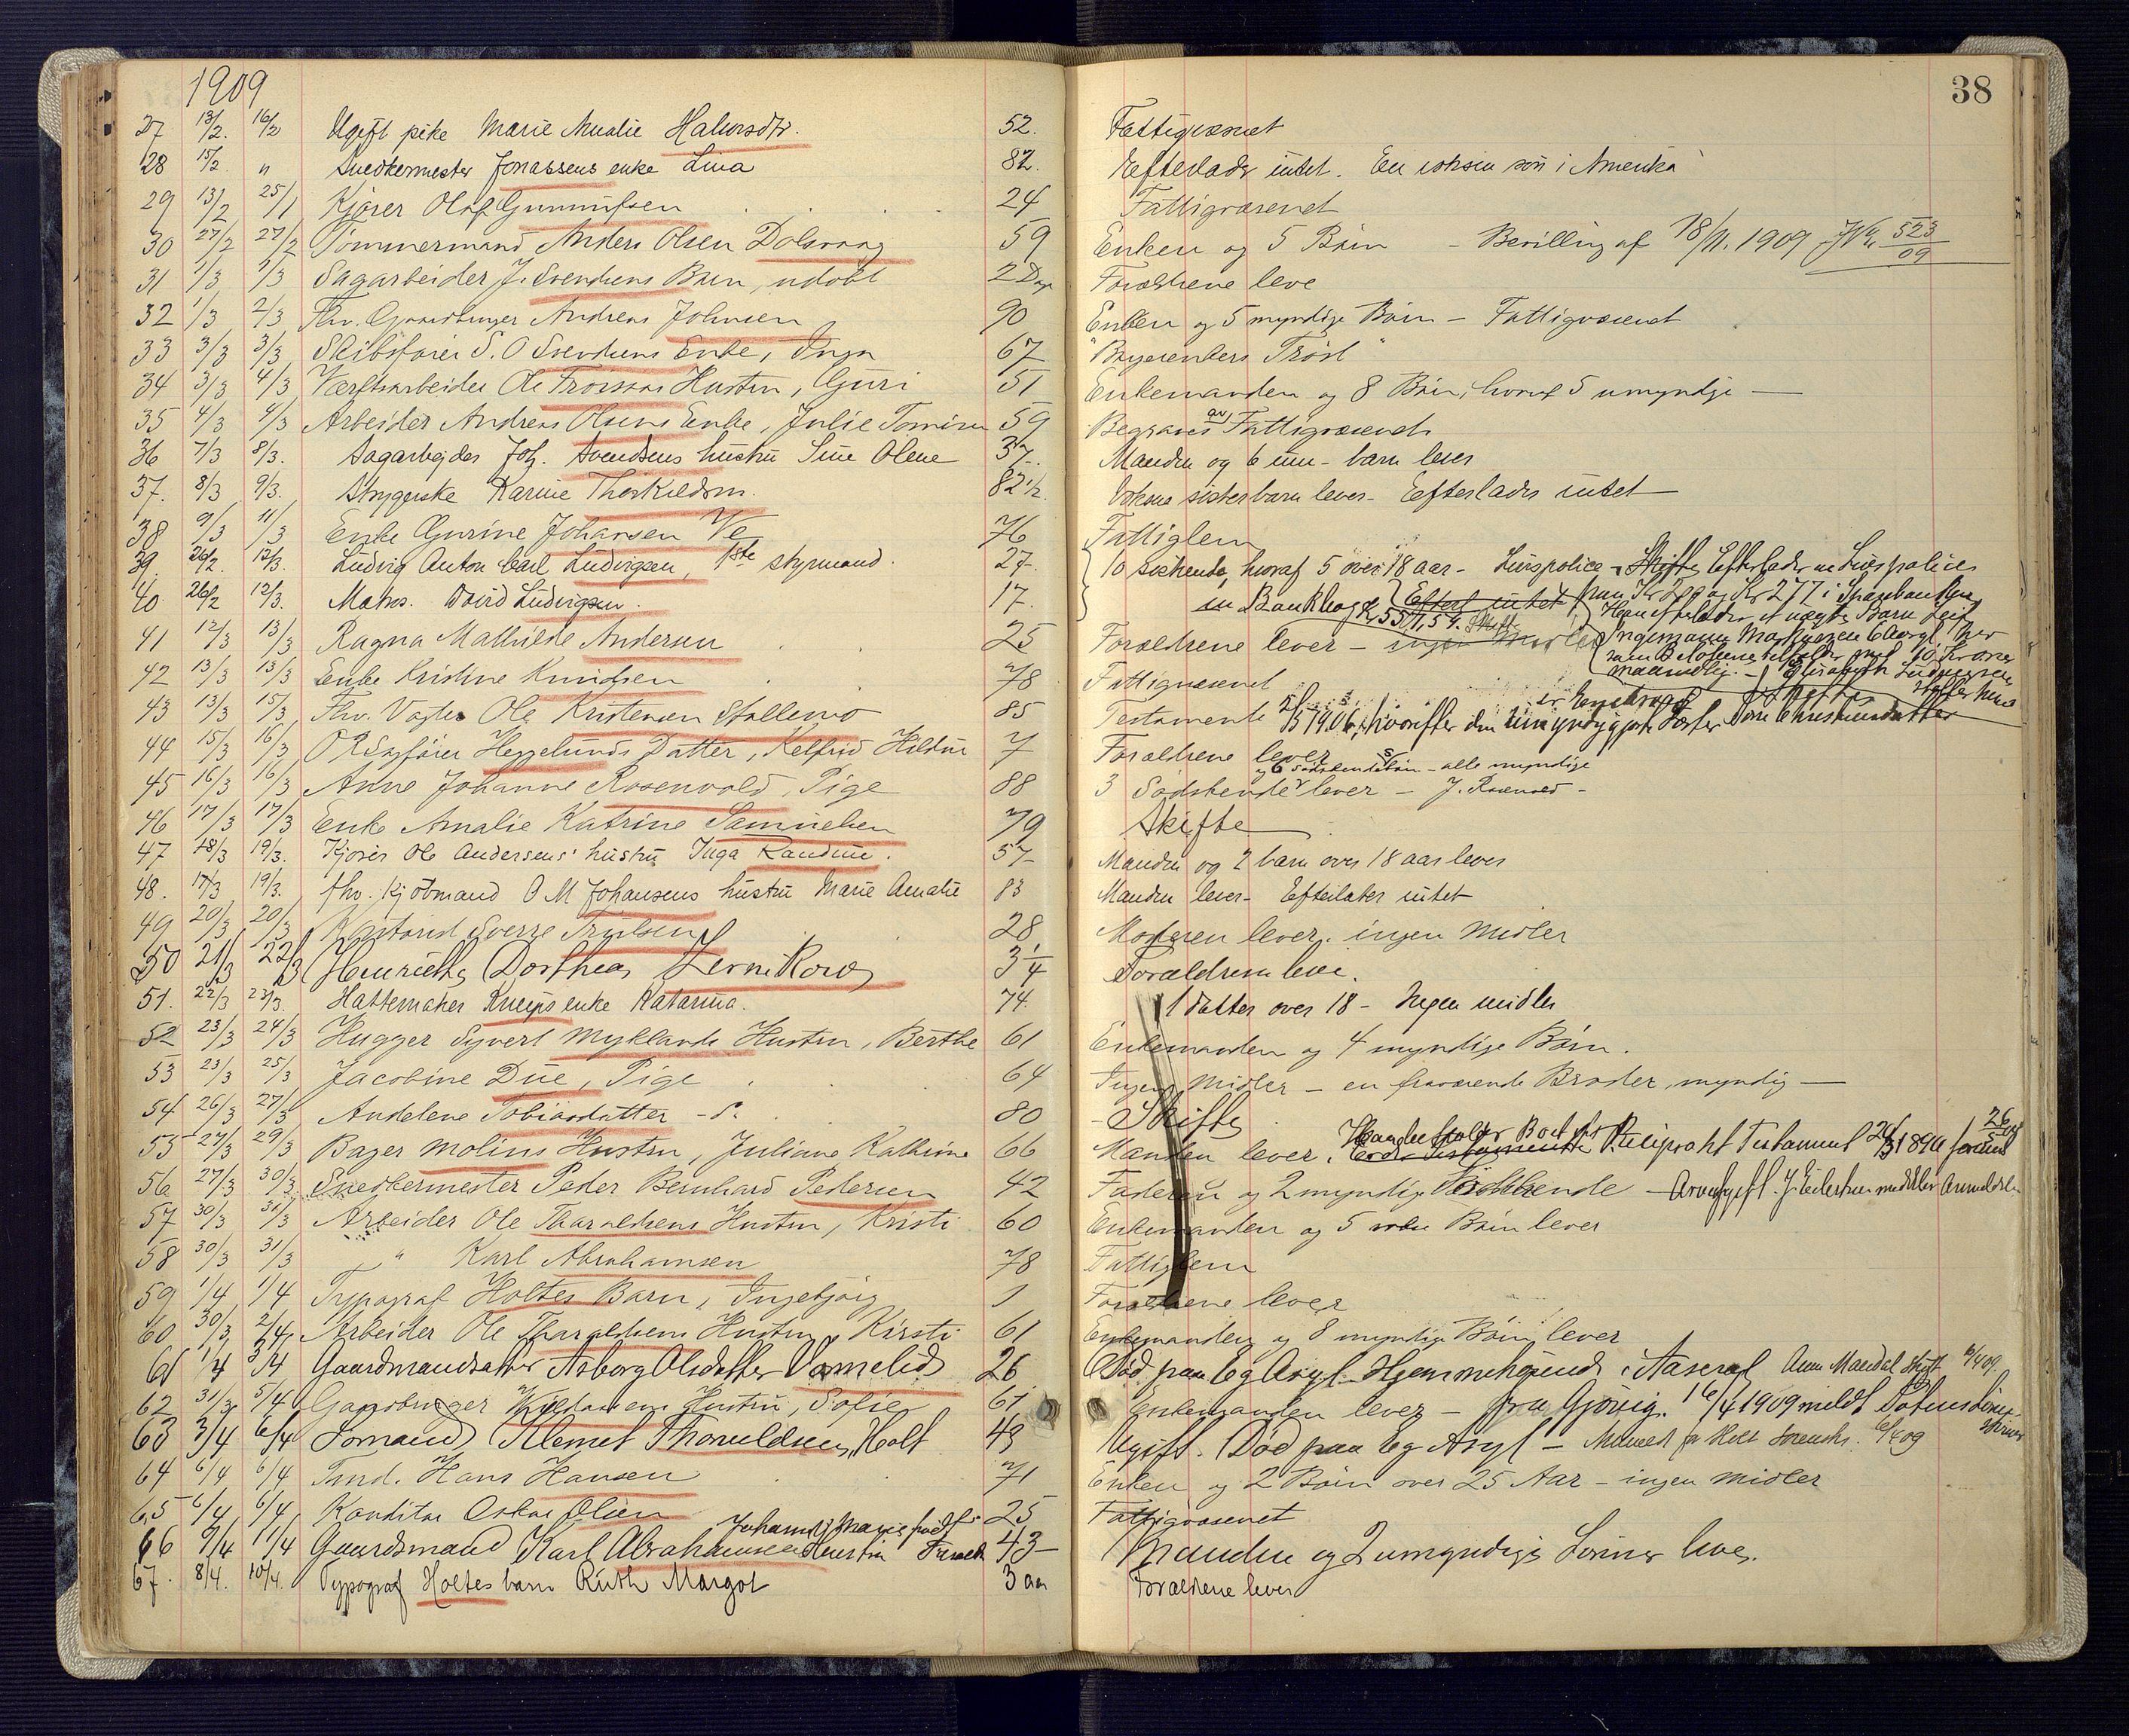 1909
38
27 13/2. 16/2 Ugift pike Marie Amalie Halvorsdtr. 52. Fattigvæsnet
28 15/2 " Snedkermester Jonassens enke Lina 82. Efterlader intet. En voksen søn i Amerika
29 13/2 25/1 Kjører Olaf Gunnufsen 24 Fattigvæsenet
30 27/2 27/2 Tømmermand Anders Olsen Dolsvaag 59 Enken og 5 Børn - Bevilling af 18/11. 1909 523/09
31 1/3 1/3 Sagarbeider J. Svendsens Barn, udøbt 2 Dage Forældrene leve
32 1/3 2/3 Fhv. Gaardbruger Andreas Johnsen 90 Enken og 5 myndige Børn - Fattigvæsenet
33 3/3 3/3 Skibsfører S. O Svendsens Enke, Inga 67 "Borgerenkers Trøst"
34 3/3 4/3 Værftsarbeider Ole Hustru, Guri 51 Enkemanden og 8 Børn, hvoraf 5 umyndige
35 4/3 4/3 Arbeider Andreas Olsens Enke, Julie Tomine 59 Begraves av Fattigvæsenet
36 7/3 8/3. Sagarbejder Joh. Svendsens hustru Sine Olene 37. Manden og 6 um- barn lever
37. 8/3 9/3. Strygerske Karine Thorkildsen. 82 1/2. Voksne søsterbarn lever - Eefterlader intet
38 9/3 11/3 Enke Gurine Johansen Ve 76 Fattiglem
39. 26/2. 12/3. Ludvig Anton Carl Ludvigsen, 1ste styrmand. 27. 10 søskende, hvoraf 5 over 18 aar - Livspolice - Skifte Efterlader en Livspolice
40. 26/2 12/3. Matros. David Ludvigsen. 17. en Bankbog Efterl intet Kr 277 i Sparebanken
41 12/3 13/3 Ragna Mathilde Andersen 25 Forældrene lever - ingen Midler
42 13/3 13/3 Enke Kristine Knudsen 78 Fattigvæsenet
43 13/3 15/3 Fhv. Vogter Ole Kristensen Stallemo 85 Testamente 1906, hvorefter den umyndiggjorte Søster
44 15/3 16/3 O R Sagfører Heggelunds Datter, Kelfrid Hildur 7 Forældrene lever
45 16/3 16/3 Anne Johanne Rosenvold, Pige 88 3 Sødskende og 6 Sødskendebørn - alle myndige lever - J. Rosenvold -
46 17/3 17/3 Enke Amalie Katrine Samuelsen 79 Skifte
47 18/3 19/3. Kjører Ole Andersens hustru Inga Randine. 57- Manden og 2 barn over 18 aar lever
48. 17/3 19/3. fhv. kjøbmand O M Johansens hustru Marie Amalie 83 Manden lever - Efterlater intet
49 20/3 20/3 Kontorist Sverre Trulsen 28 Moderen lever, ingen Midler
50 21/3 22/3 Henriette Dorthea Zernikow 3 1/4 Forældrene leve.
51. 22/3 23/3. Hattemaker Knieps enke Katarina. 74. 1 datter over 18 - Ingen midler
52 23/3 24/3 Hugger Syvert Myklands Hustru, Berthe 61 Enkemanden og 4 myndige Børn.
53 23/3 25/3 Jacobine Due, Pige 64 Ingen Midler - en fraværende Broder, myndig -
54 26/3 27/3 Andelene Tobiasdatter 80 Skifte
55 27/3 29/3 Bager Molins Hustru, Juliane Kathrine 66 Manden lever. Reciprokt Testament
56 27/3 30/3 Snedkermester Peder Bernhard Pedersen 42 Faderen og 2 myndige Sødskende - Arveafgift.
57 30/3 31/3 Arbeider Ole Tharaldsens Hustru, Kristi 60 Enkemanden og 5 Børn lever
58 30/3 31/3 " Karl Abrahamsen 78 Fattiglem
59 1/4 1/4 Typograf Holtes Barn, Ingebjørg 1 Forældrene lever
60 30/3 2/4 Arbeider Ole Tharaldsens Hustru, Kirsti 61 Enkemanden og 8 myndige Børn lever
61 1/4 3/4 Gaardmandsdatter Asborg Olsdatter 26 Død paa Eg Asyl. Hjemmehørende i Aaseral
62 31/3 5/4 Gaardbruger Hustru, Sofie 61 Enkemanden lever - fra Gjøvig. 16/4 1909 meldt
63 3/4 6/4 Sømand Klemet Thoruldsen, Holt 49 Ugift. Død paa Eg Asyl - 6/4 09
64 6/4 6/4 Tmd. Hans Hansen 71 Enken og 2 Børn over 25 Aar - ingen Midler
65 6/4 6/4 Konditor Oskar Olsen 25 Fattigvæsenet
66 9/4 11/4 Gaardsmand Karl Abrahamsens Hustru Johanne Marie født 43- Manden og 2 umyndige Sønner lever.
67. 8/4. 10/4. Typograf Holtes barn Ruth Margot 3 aar Forældrene lever